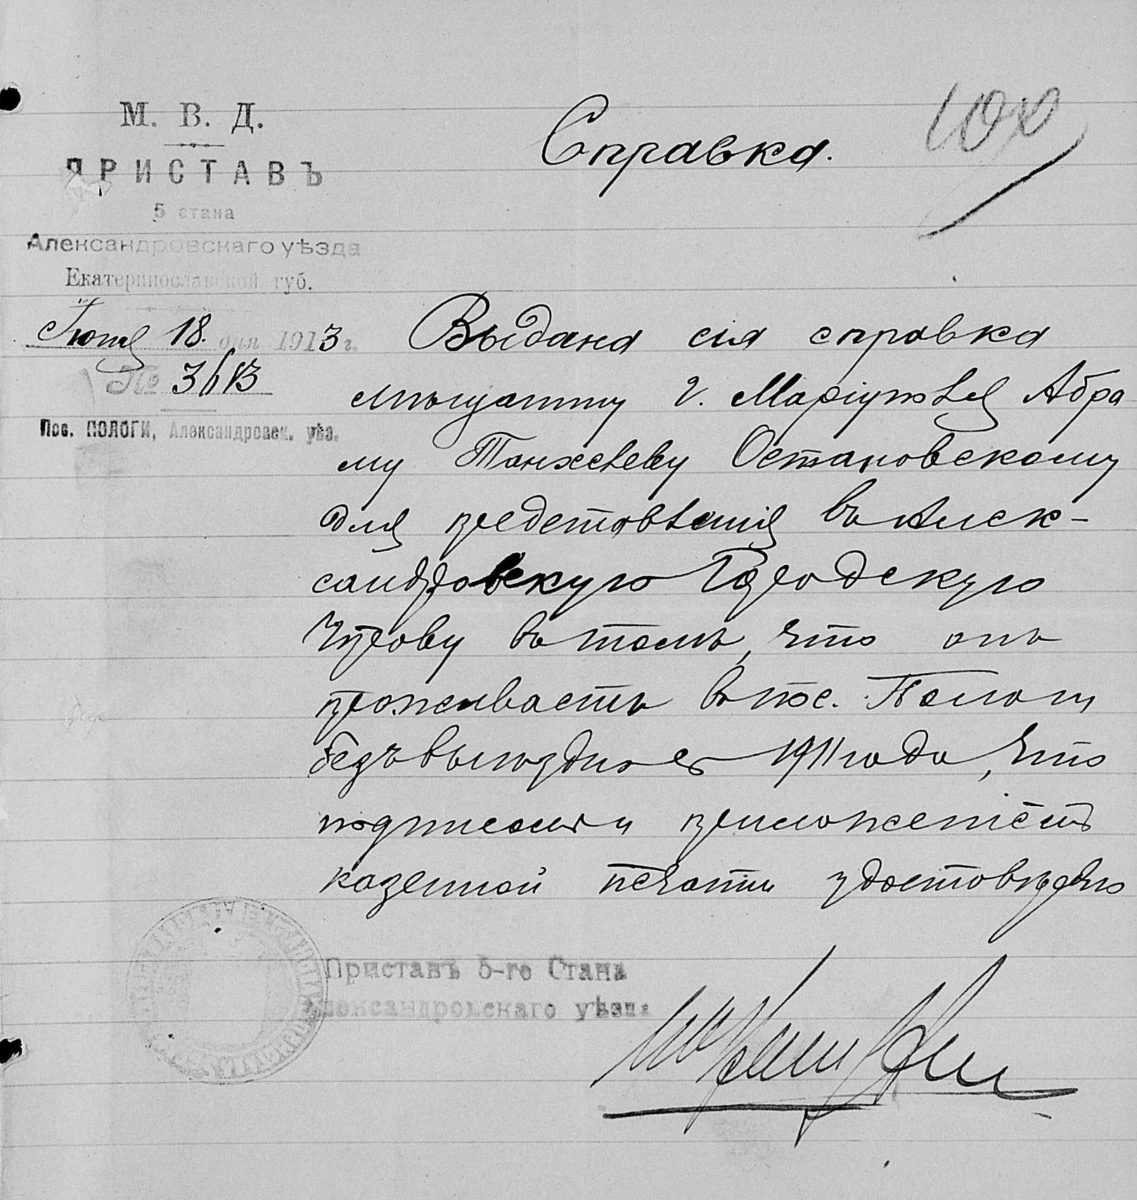 М. В. Д.
ПРИСТАВЪ
5 стана
Александровскаго уѣзда
Екатеринославской губ.
Іюня 18 дня 1913 г.
№ 3613
Пос. ПОЛОГИ, Александровск. уѣз.
100
Справка.
Выдана сія справка
мѣщанину г. Маріуполя Абра
му Остановскому
для представленія въ Алек-
сандровскую Городскую
Управу въ томъ, что онъ
проживаетъ въ пос. Пологи
безъвыѣздно съ 1911 года, что
подписомъ и приложеніемъ
казенной печати удостовѣряю
Приставъ 5-го Стана
Александровскаго уѣзда